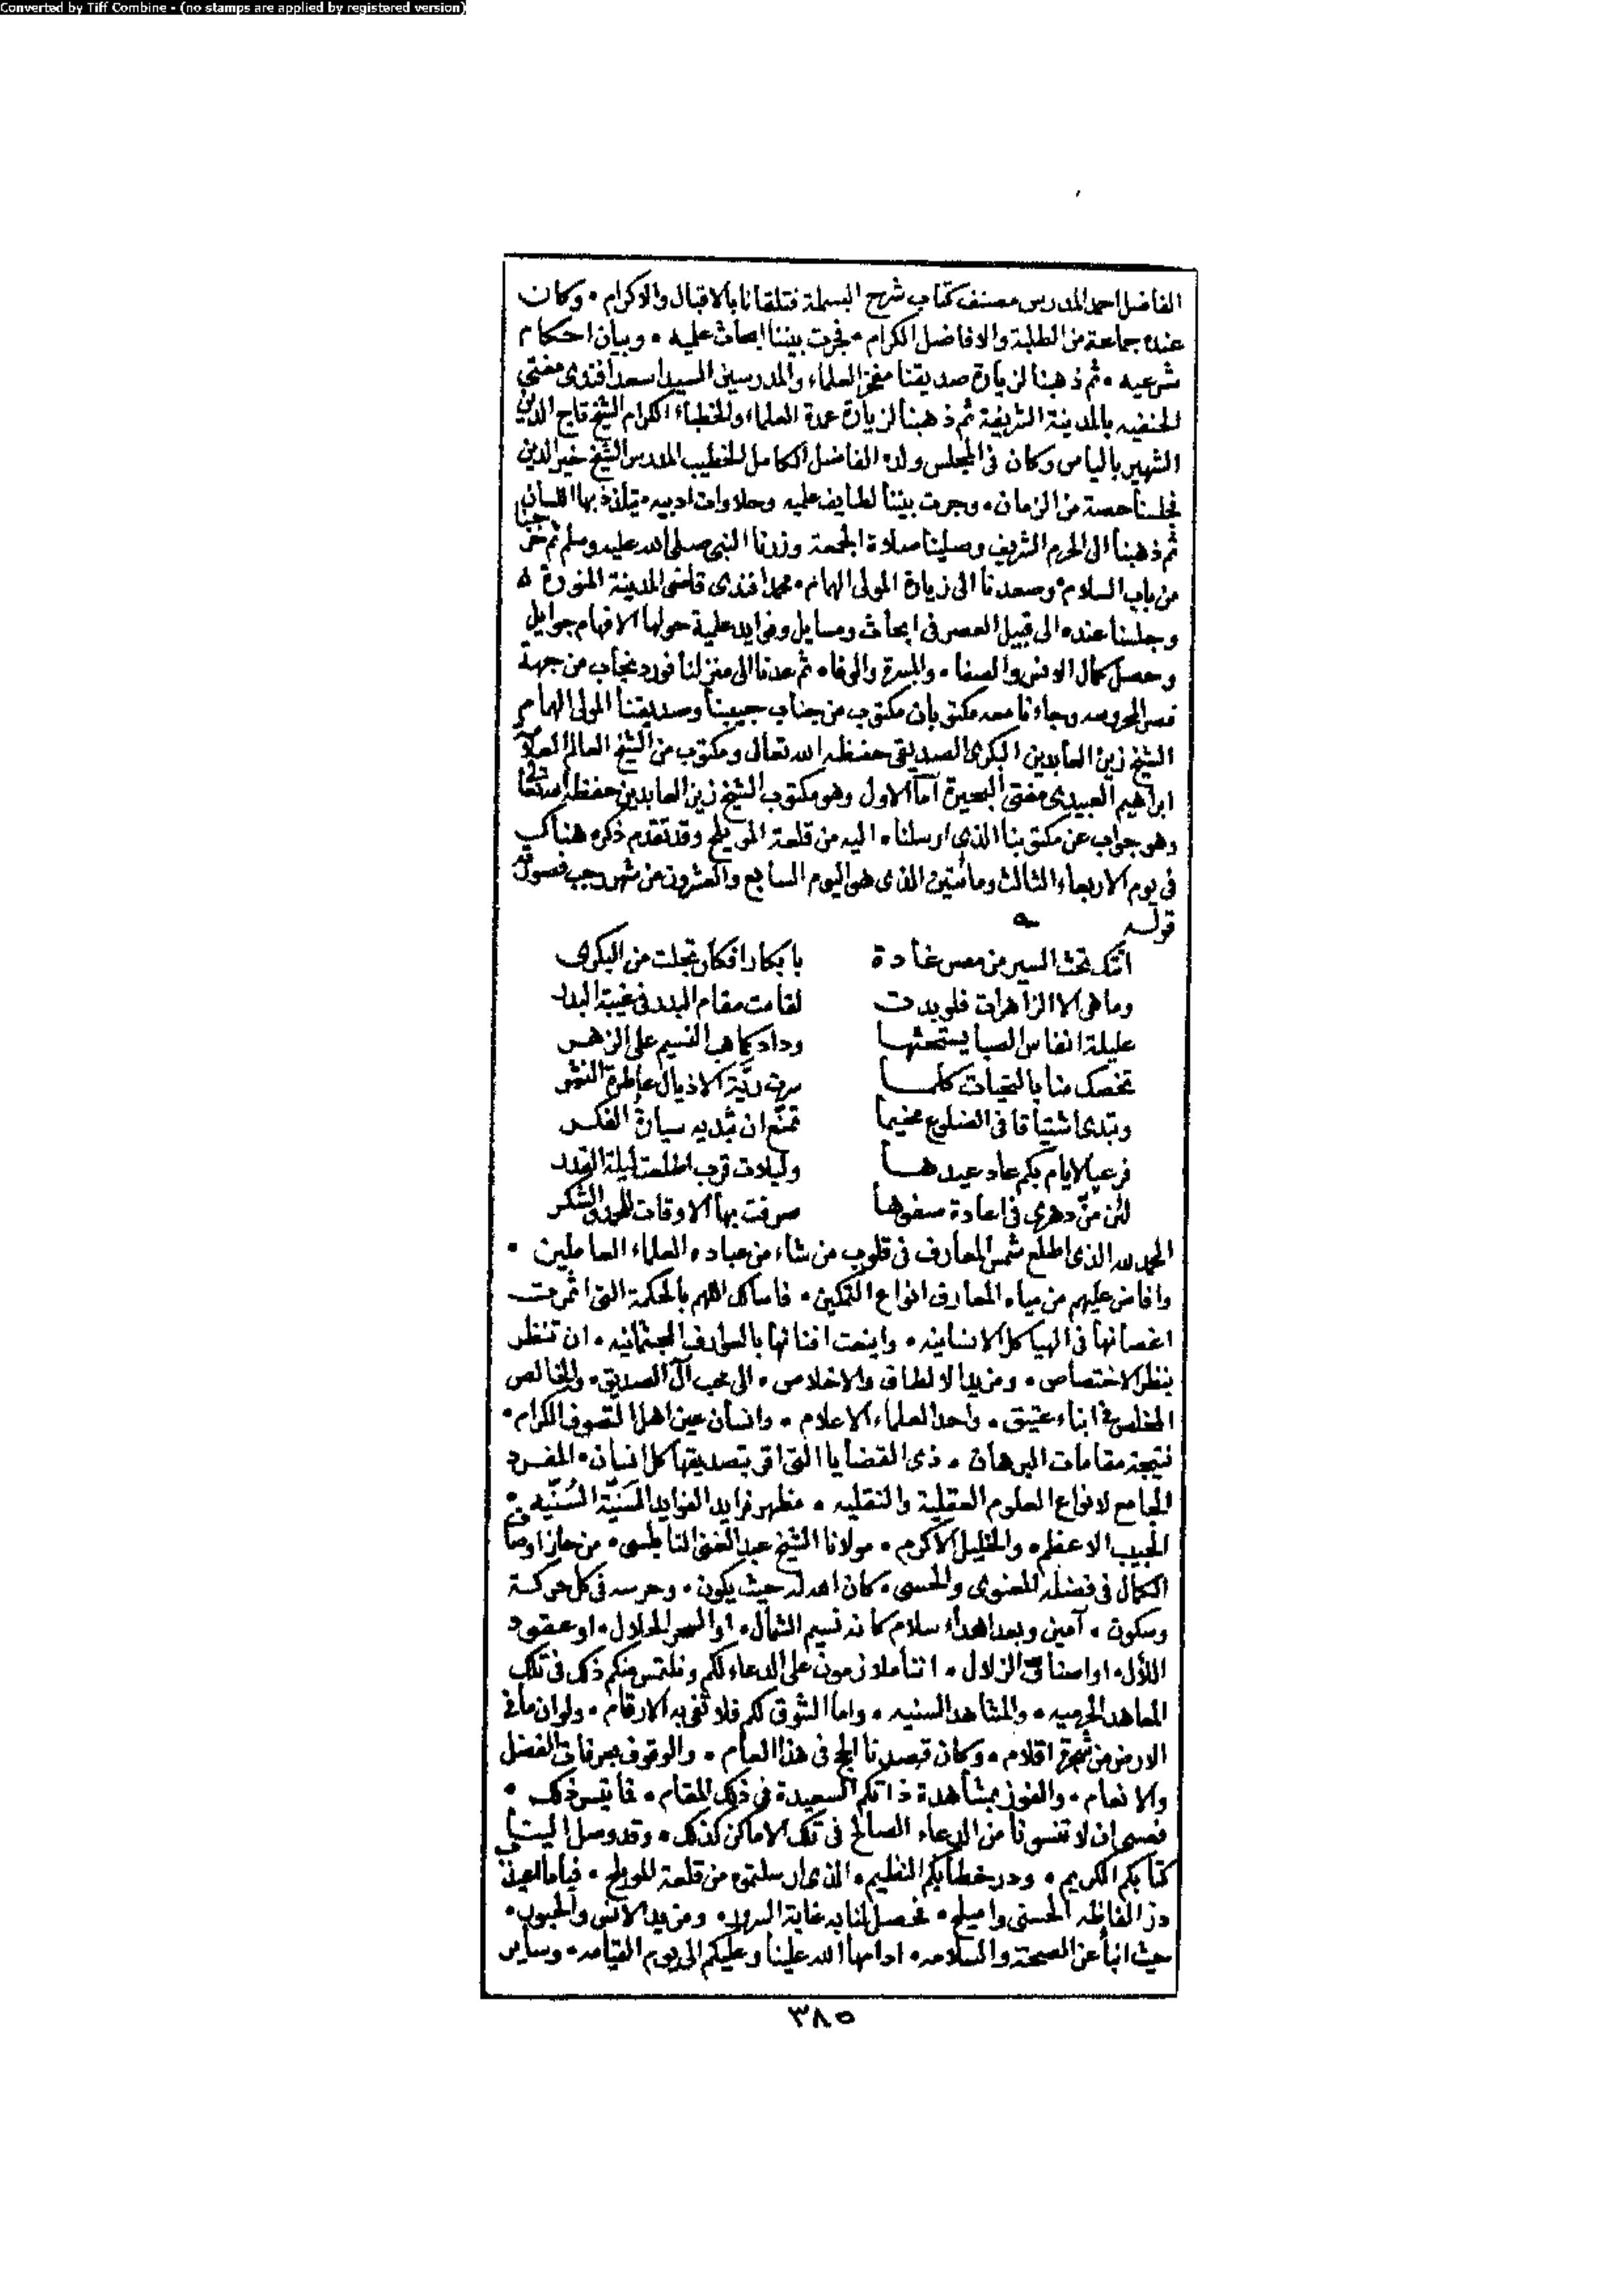 Converted by Tiff Combine - (no stamps are applied by registered version)
الفاضل احمد المدرس مصنف كتاب شرح البسملة فتلقانا بالاقبال والاكرام • وكان
عنده جماعة من الطلبة والافاضل الكرام • فجرت بيننا ابحاث علميه • وبيان احكام
شرعيه • ثم ذهبنا لزيارة صديقنا مفخر العلماء والمدرسين السيد اسعد افندى مفتي
الحنفيه بالمدينة الشريفة ثم ذهبنا لزيارة عمدة العلماء والخطباء الكرام الشيخ تاج الدين
الشهير بالياس وكان فى المجلس ولده الفاضل الكامل الخطيب المدرس الشيخ خير الدين
فجلسنا حصة من الزمان • وجرت بيننا لطايف علميه وحلاوات ادبيه • يتلذذ بها اللسان
ثم ذهبنا الى الحرم الشريف وصلينا صلاة الجمعة وزرنا النبى صلى الله عليه وسلم ثم خرجنا
من باب السلام • وصعدنا الى زيارة المولى الهمام • محمد افندى قاضى المدينة المنورة ه
وجلسنا عنده الى قبيل العصر فى ابحاث ومسايل وفوايد علمية حولها الافهام جوايل
وحصل كمال الانس والصفا • والمسرة والوفا • ثم عدنا الى منزلنا فورد نجاب من جهة
مصر المحروسه وجاءنا معه مكتوبان مكتوب من جناب حبيبنا وصديقنا المولى الهمام
الشيخ زين العابدين البكرى الصديقى حفظه الله تعالى ومكتوب من الشيخ العالم العلامة
ابراهيم العبيدى مفتى البحيرة اما الاول وهو مكتوب الشيخ زين العابدين حفظه الله تعالى
وهو جواب عن مكتوبنا الذى ارسلناه اليه من قلعة المويلح وقد تقدم ذكره هناك
فى يوم الاربعاء الثالث ومائتين الذى هو اليوم السابع والعشرون من شهر رجب فصورته
قوله
اتتك تحث السير من مصر غادة بابكار افكار تجلت من البكرى
وما هى الا الزاهرات فلو بدت لقامت مقام البدر فى غيبة البدر
عليلة انفاس الصبا يستحثها وداد كما هب النسيم على الزهر
تخصك منا بالتحيات كلما سرت ريّة الاذيال عاطرة النشر
وتبدى اشتياقا فى الضلوع مخيما تمنّع ان تبديه سيارة الفكر
فرعيا لايام بكم عاد عيدها وليلات قرب اطلعت ليلة القدر
لئن منّ دهرى فى اعادة صفوها صرفت بها الاوقات للحمد والشكر
الحمد لله الذى اطلع شمس المعارف فى قلوب من شاء من عباده العلماء العاملين •
وافاض عليهم من مياه المعارف انواع التمكين • فاسالك اللهم بالحكمة التى اثمرت
اغصانها فى الهياكل الانسانيه • واينعت افنانها بالعوارف الجثمانيه • ان تنظر
بنظر الاختصاص • ومزيد الالطاف والاخلاص • الى محب آل الصديق • والخالص
المخلص فى ابناء عتيق • واحد العلماء الاعلام • وانسان عين اهل التصوف الكرام •
نتيجة مقامات البرهان • ذى القضايا التى اقر بتصديقها كل انسان • المفرد
الجامع لانواع العلوم العقلية والنقليه • مظهر فرايد الفوايد السَنيّة السُنّيه •
الحبيب الاعظم • والخليل الاكرم • مولانا الشيخ عبد الغنى النابلسى • من حاز اوصاف
الكمال فى فضله المعنوى والحسى • كان الله له حيث يكون • وحرسه فى كل حركة
وسكون • آمين وبعد اهداء سلام كانه نسيم الشمال • او السحر الحلال • او عقود
اللأل • او اصفا من الزلال • اننا ملازمون على الدعاء لكم ونلتمس منكم ذلك فى تلك
المعاهد الحرميه • والمشاهد السنيه • واما الشوق لكم فلا تفى به الارقام • ولو ان ما فى
الارض من شجرة اقلام • وكان قصدنا الحج فى هذا العام • والوقوف بعرفات الفضل
والانعام • والفوز بمشاهدة ذاتكم السعيدة فى ذلك المقام • فما تيسر ذلك •
فعسى ان لا تنسونا من الدعاء الصالح فى تلك الاماكن كذلك • وقد وصل الينا
كتابكم الكريم • ودر خطابكم النظيم • الذى ارسلتموه من قلعة المويلح • فياما احيلى
در الفاظه الحسنى واميلح • فحصل لنا به غاية السرور • ومزيد الانس والحبور •
حيث انبأ عن الصحة والسلامه • ادامها الله علينا وعليكم الى يوم القيامه • وساير
٣٨٥